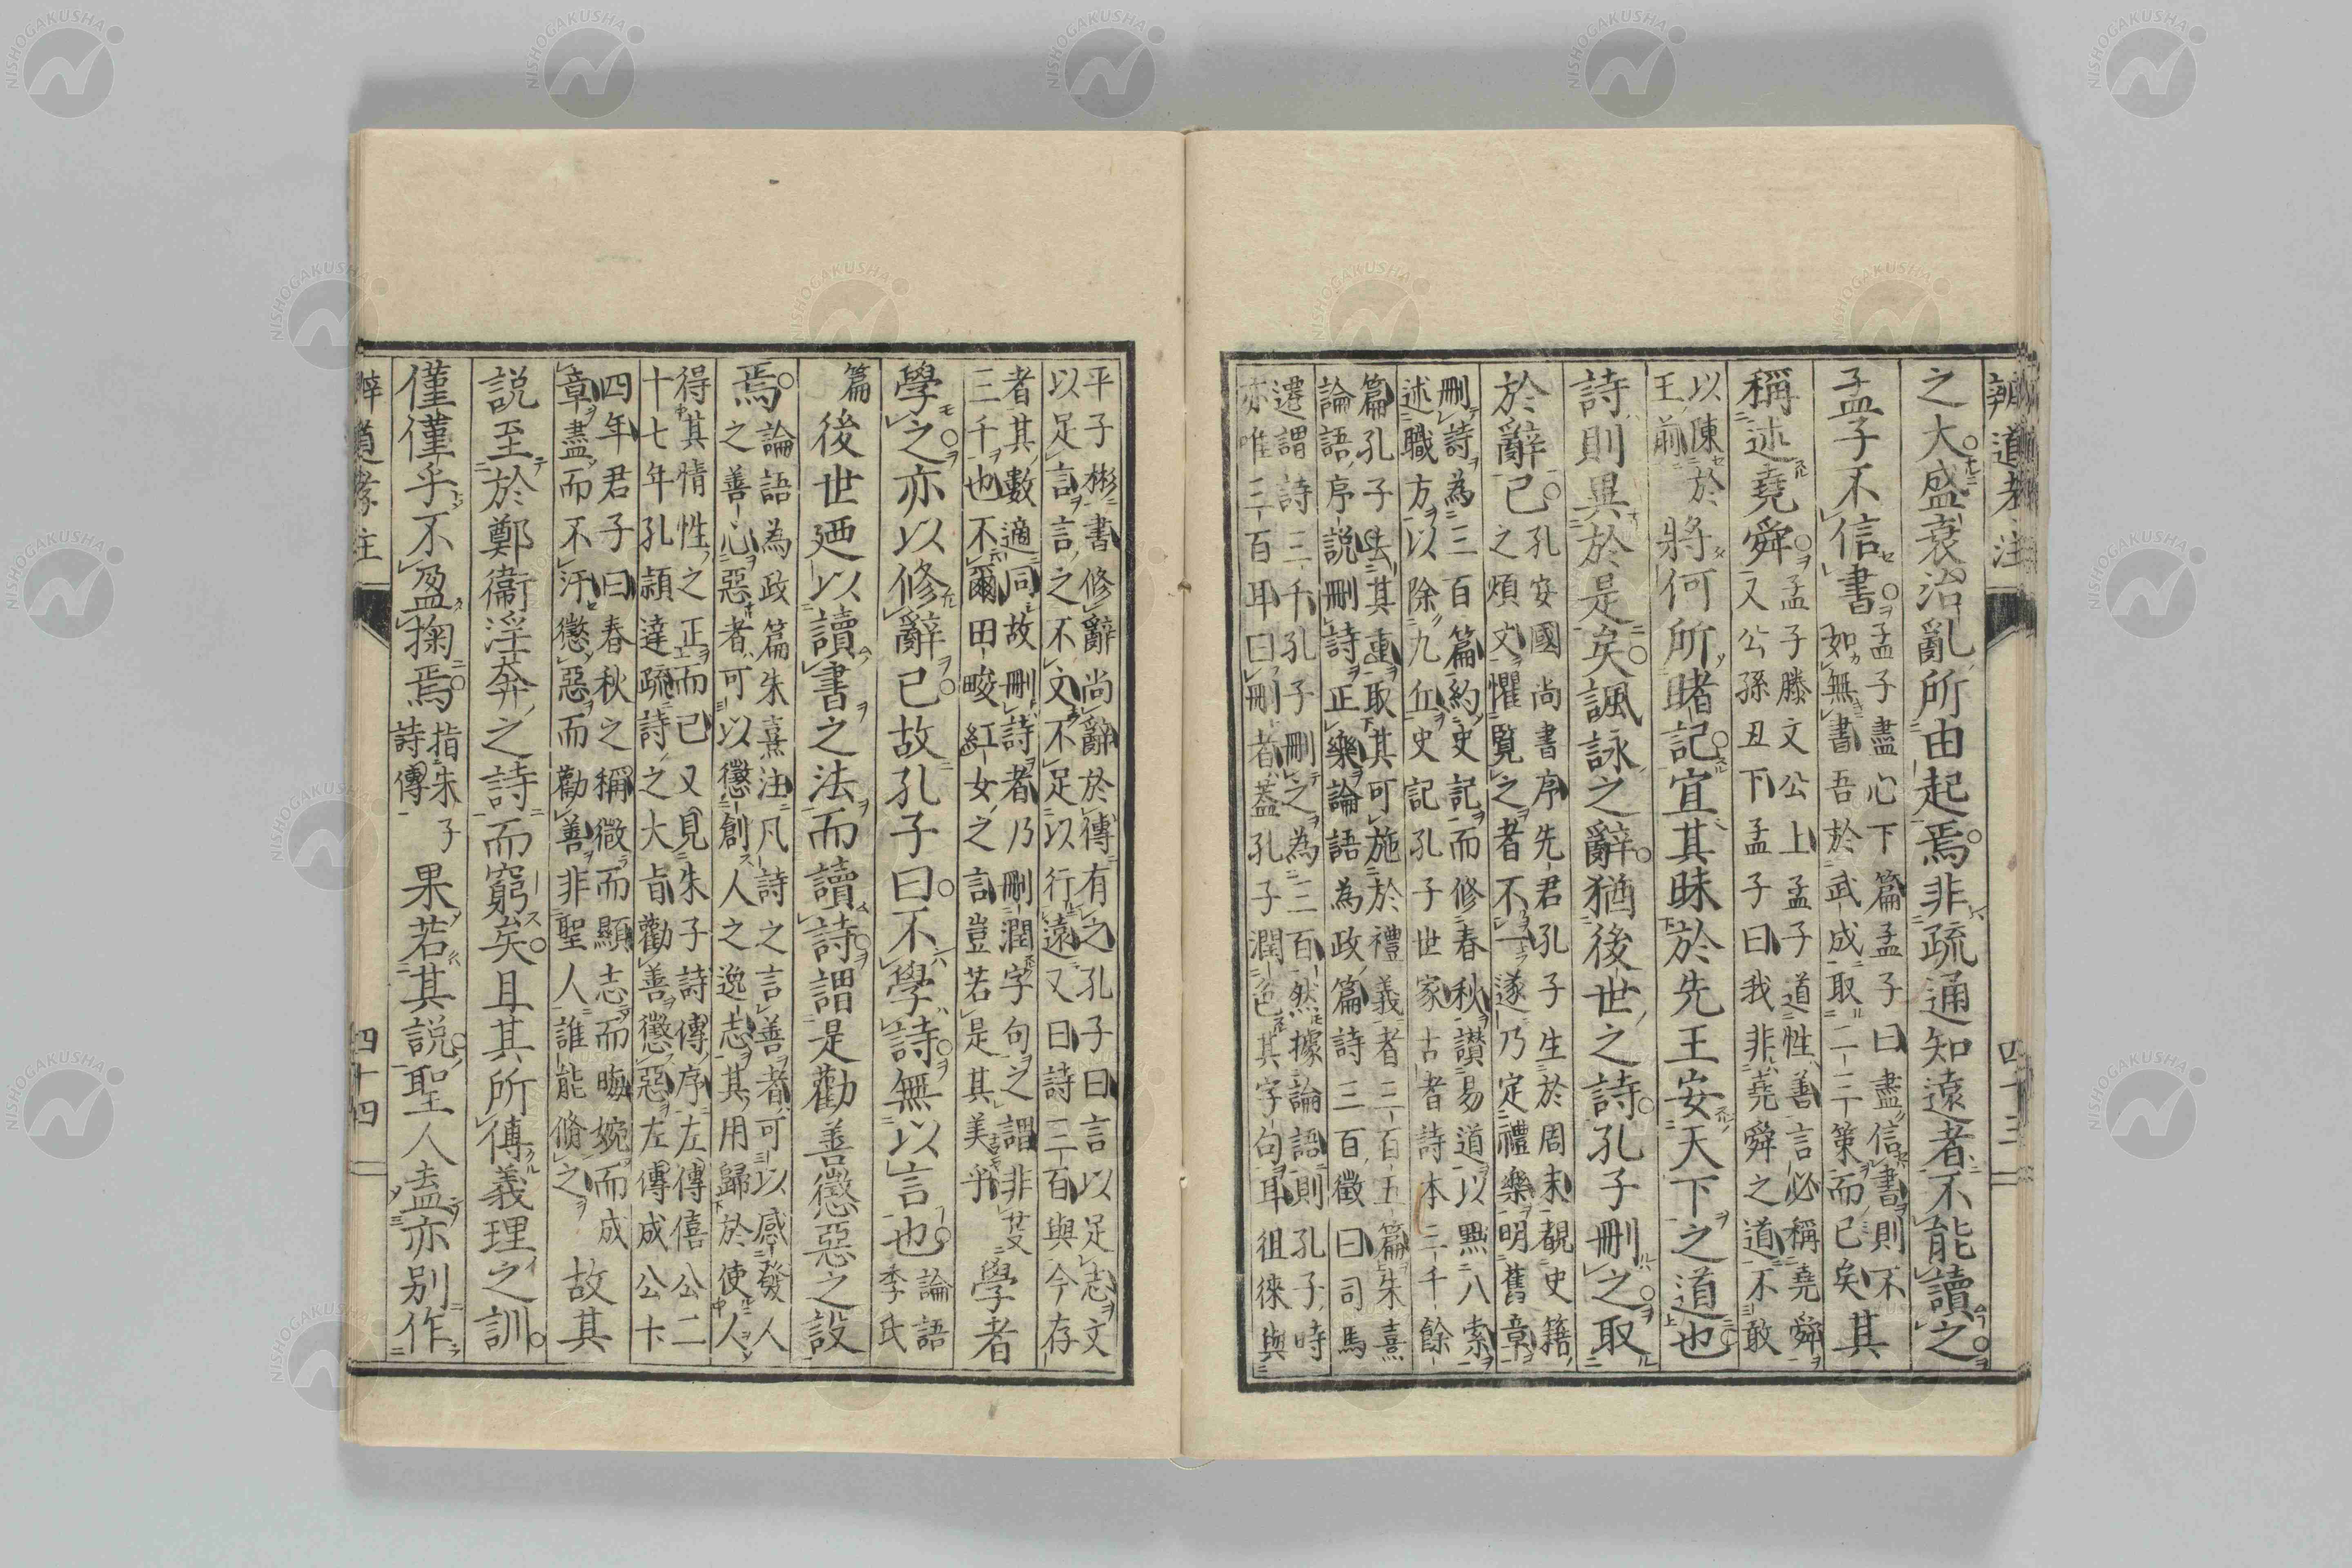 辨道考注 四十三
之大盛衰治亂所由起焉非疏通知遠者不能讀之
孟子不信書
孟子盡心下篇孟子曰盡信書則不
如無書吾於武成取二三策而已矣
其
稱述堯舜
孟子滕文公上孟子道性善言必稱堯舜
又公孫丑下孟子曰我非堯舜之道不敢
以陳於
王前
將何所睹記宜其昧於先王安天下之道也
詩則異於是矣諷詠之辭猶後世之詩孔子刪之取
於辭已
孔安國尚書序先君孔子生於周末覩史籍
之煩文懼覽之者不一遂乃定禮樂明舊章
刪詩為三百篇約史記而修春秋讚易道以黜八索
述職方以除九丘史記孔子世家古者詩本三千餘
篇孔子去其重取其可施於禮義者三百五篇朱熹
論語序說刪詩正樂論語為政篇詩三百徵曰司馬
遷謂詩三千孔子刪之為三百然據論語則孔子時
亦唯三百耳曰刪者蓋孔子潤色其字句耳徂徠與
平子彬書修辭尚辭於傳有之孔子曰言以足志文
以足言言之不文不足以行遠又曰詩三百與今存
者其數適同故刪詩者乃刪潤字句之謂非芟
三千也不爾田畯紅女之言豈若是其美乎
學者
學之亦以修辭已故孔子曰不學詩無以言也
論語
季氏
篇
後世廼以讀書之法而讀詩謂是勸善懲惡之設
焉
論語為政篇朱熹注凡詩之言善者可以感發人
之善心惡者可以懲創人之逸志其用歸於使人
得其情性之正而已又見朱子詩傳序左傳僖公二
十七年孔穎達疏詩之大旨勸善懲惡左傳成公十
四年君子曰春秋之稱微而顯志而晦婉而成
章盡而不汙懲惡而勸善非聖人誰能脩之
故其
說至於鄭衞淫奔之詩而窮矣且其所傳義理之訓
僅僅乎不盈掬焉
指朱子
詩傳
果若其說聖人盍亦別作
辨道考注 四十四